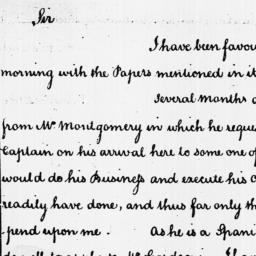 Sir
I have been favou
morning with the Papers mentioned in it
Several months a
from Mr. Montgomery in which he reque
Captain on his arrival here to some one of
would do his Business and execute his C
readily have done, and thus far only th
pend upon me. As he is a Spani